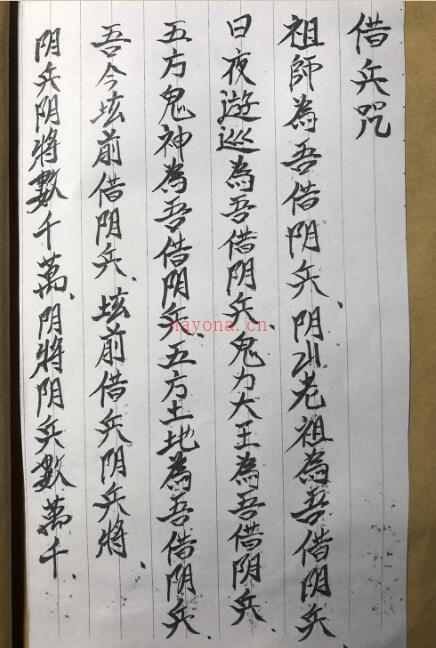 借兵咒
祖師為吾借阴兵、阴山老祖為吾借阴兵
日夜遊巡為吾借阴兵、鬼力大王為吾借阴兵、
五方鬼神為吾借阴兵、五方土地為吾借阴兵、
吾今坛前借阴兵、坛前借兵阴兵將、
阴兵阴將數千萬、阴將阴兵數萬千、
nayona.cn